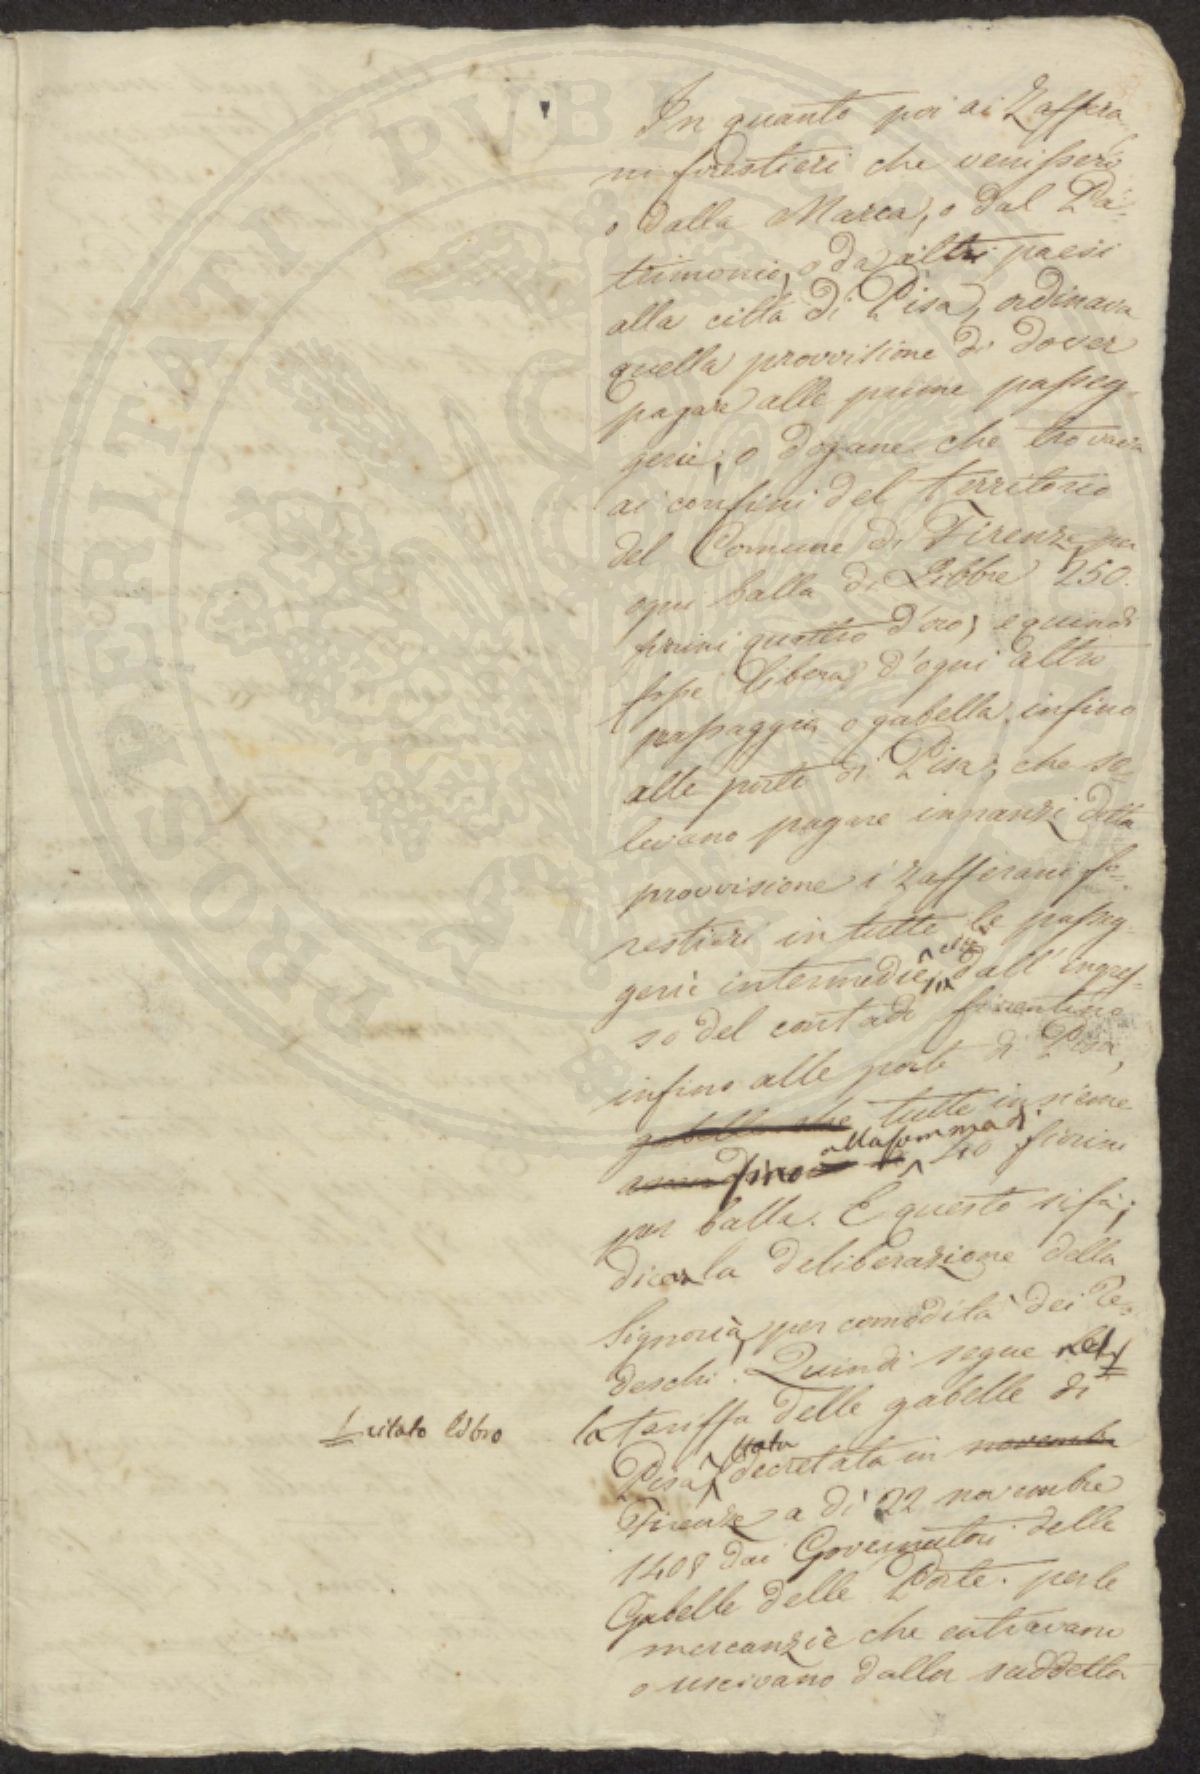 In quanto poi ai Zaffera
ni forestieri che venissero
o dalla Marca, o dal Pa=
trimonio, o da altri paesi
alla città di Pisa, ordinava
quella provvisione di dover
pagare alle prime passeg-
gerie, o dogane che trovava
ai confini del territorio
del Comune di Firenze per
ogni balla di Libbre 250.
fiorini quattro d'oro, e quindi
fosse libera d'ogni altro
passaggio, o gabella infino
alle porte di Pisa, che so-
levano pagare innanzi detta
provvisione i zafferani fo=
restieri in tutte le passeg-
gerie intermedie, dall'ingres-
so del contado fiorentino
infino alle porte di Pisa,
gabelle che tutte insieme
fino alla somma di 40 fiorini
per balla. E questo si fa;
dice la deliberazione della
Signoria, per comodità dei Te=
deschi. Quindi segue nel 1
1 citato libro
la tariffa delle gabelle di
Pisa, stata decretata in novembre
Firenze a dì 22 novembre
1408 dai Governatori delle
Gabelle delle Porte. per le
mercanzie che entravano
o uscivano dalla suddetta
PROSPERITATI PVBLICAE